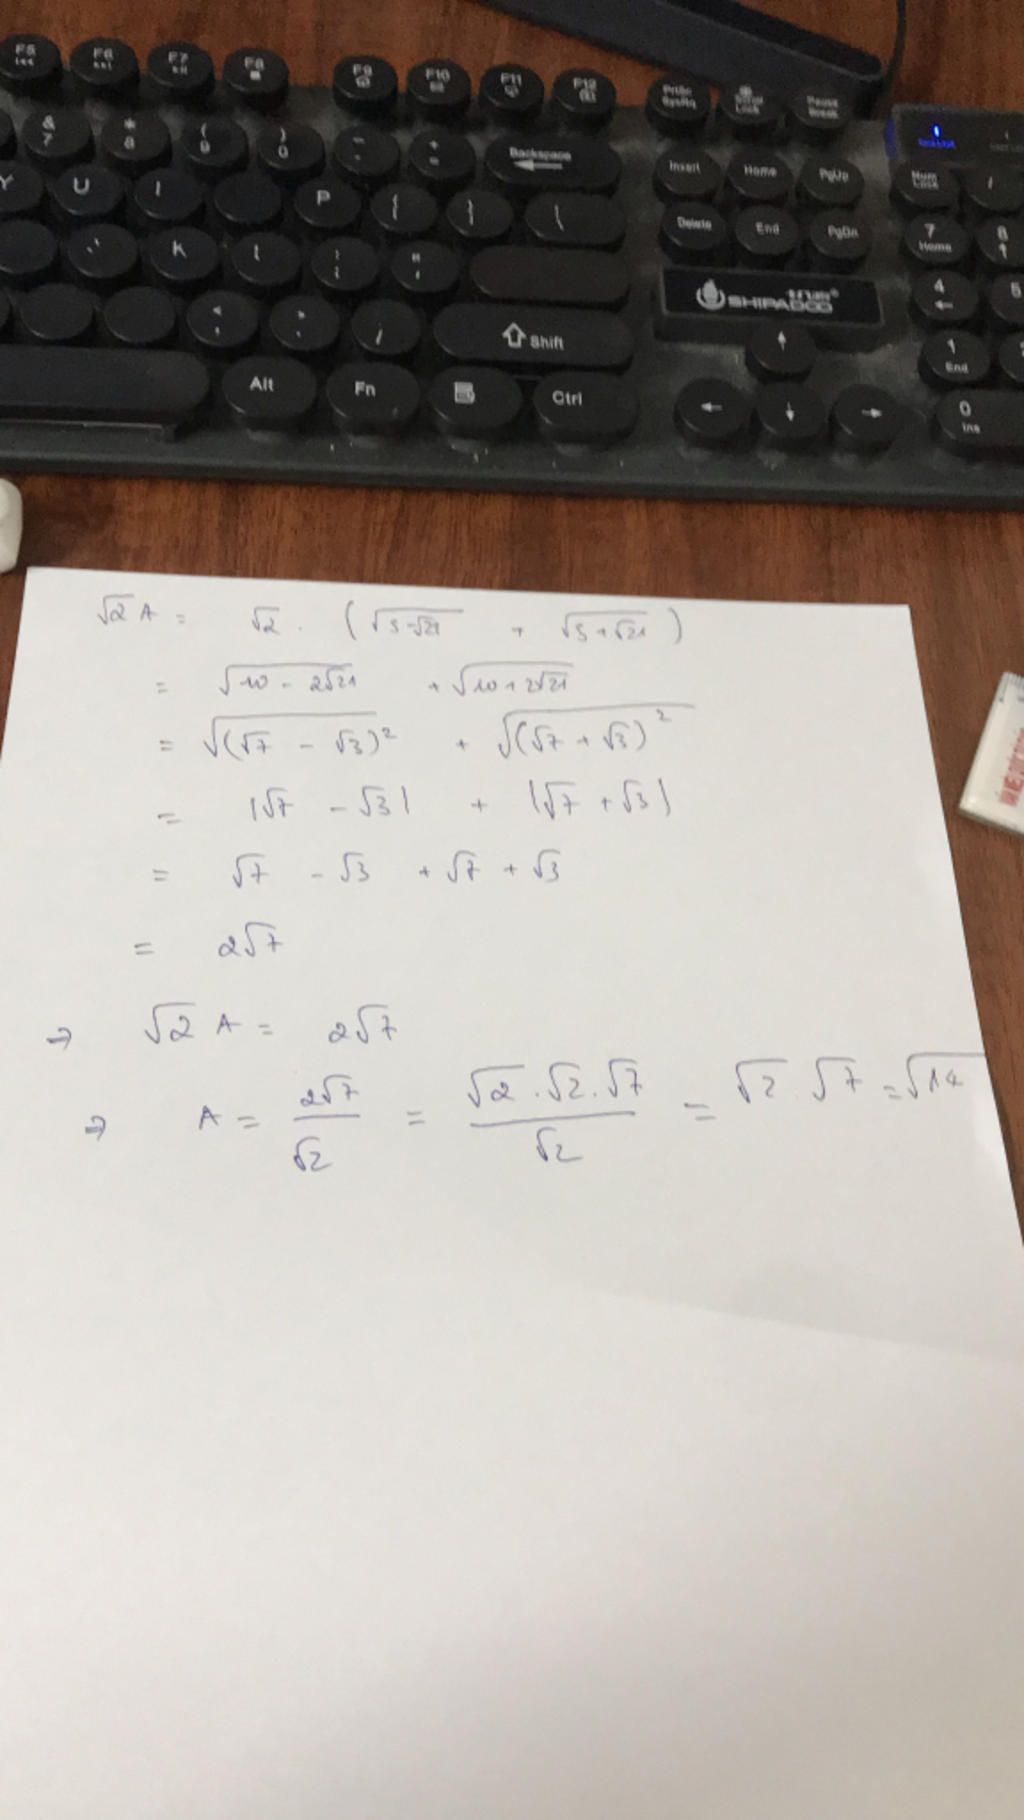 F5 F6 F7 F8 F9 F10 F11 F12 PrtSc SysRq Scroll Lock Pause Break
& 7 * 8 ( 9 ) 0 - + = Backspace Insert Home PgUp Num Lock /
Y U I P { } \ Delete End PgDn 7 Home 8
K L : ; " ' 4 5
SHIPADOO
< , > . / Shift 1 End
Alt Fn Ctrl 0 Ins
√2 A = √2 . (√5-√21 + √5+√21)
= √10 - 2√21 + √10+2√21
= √(√7 - √3)² + √(√7 + √3)²
= |√7 - √3| + |√7 + √3|
= √7 - √3 + √7 + √3
= 2√7
⇒ √2 A = 2√7
⇒ A = 2√7/√2 = √2.√2.√7/√2 = √2.√7 = √14